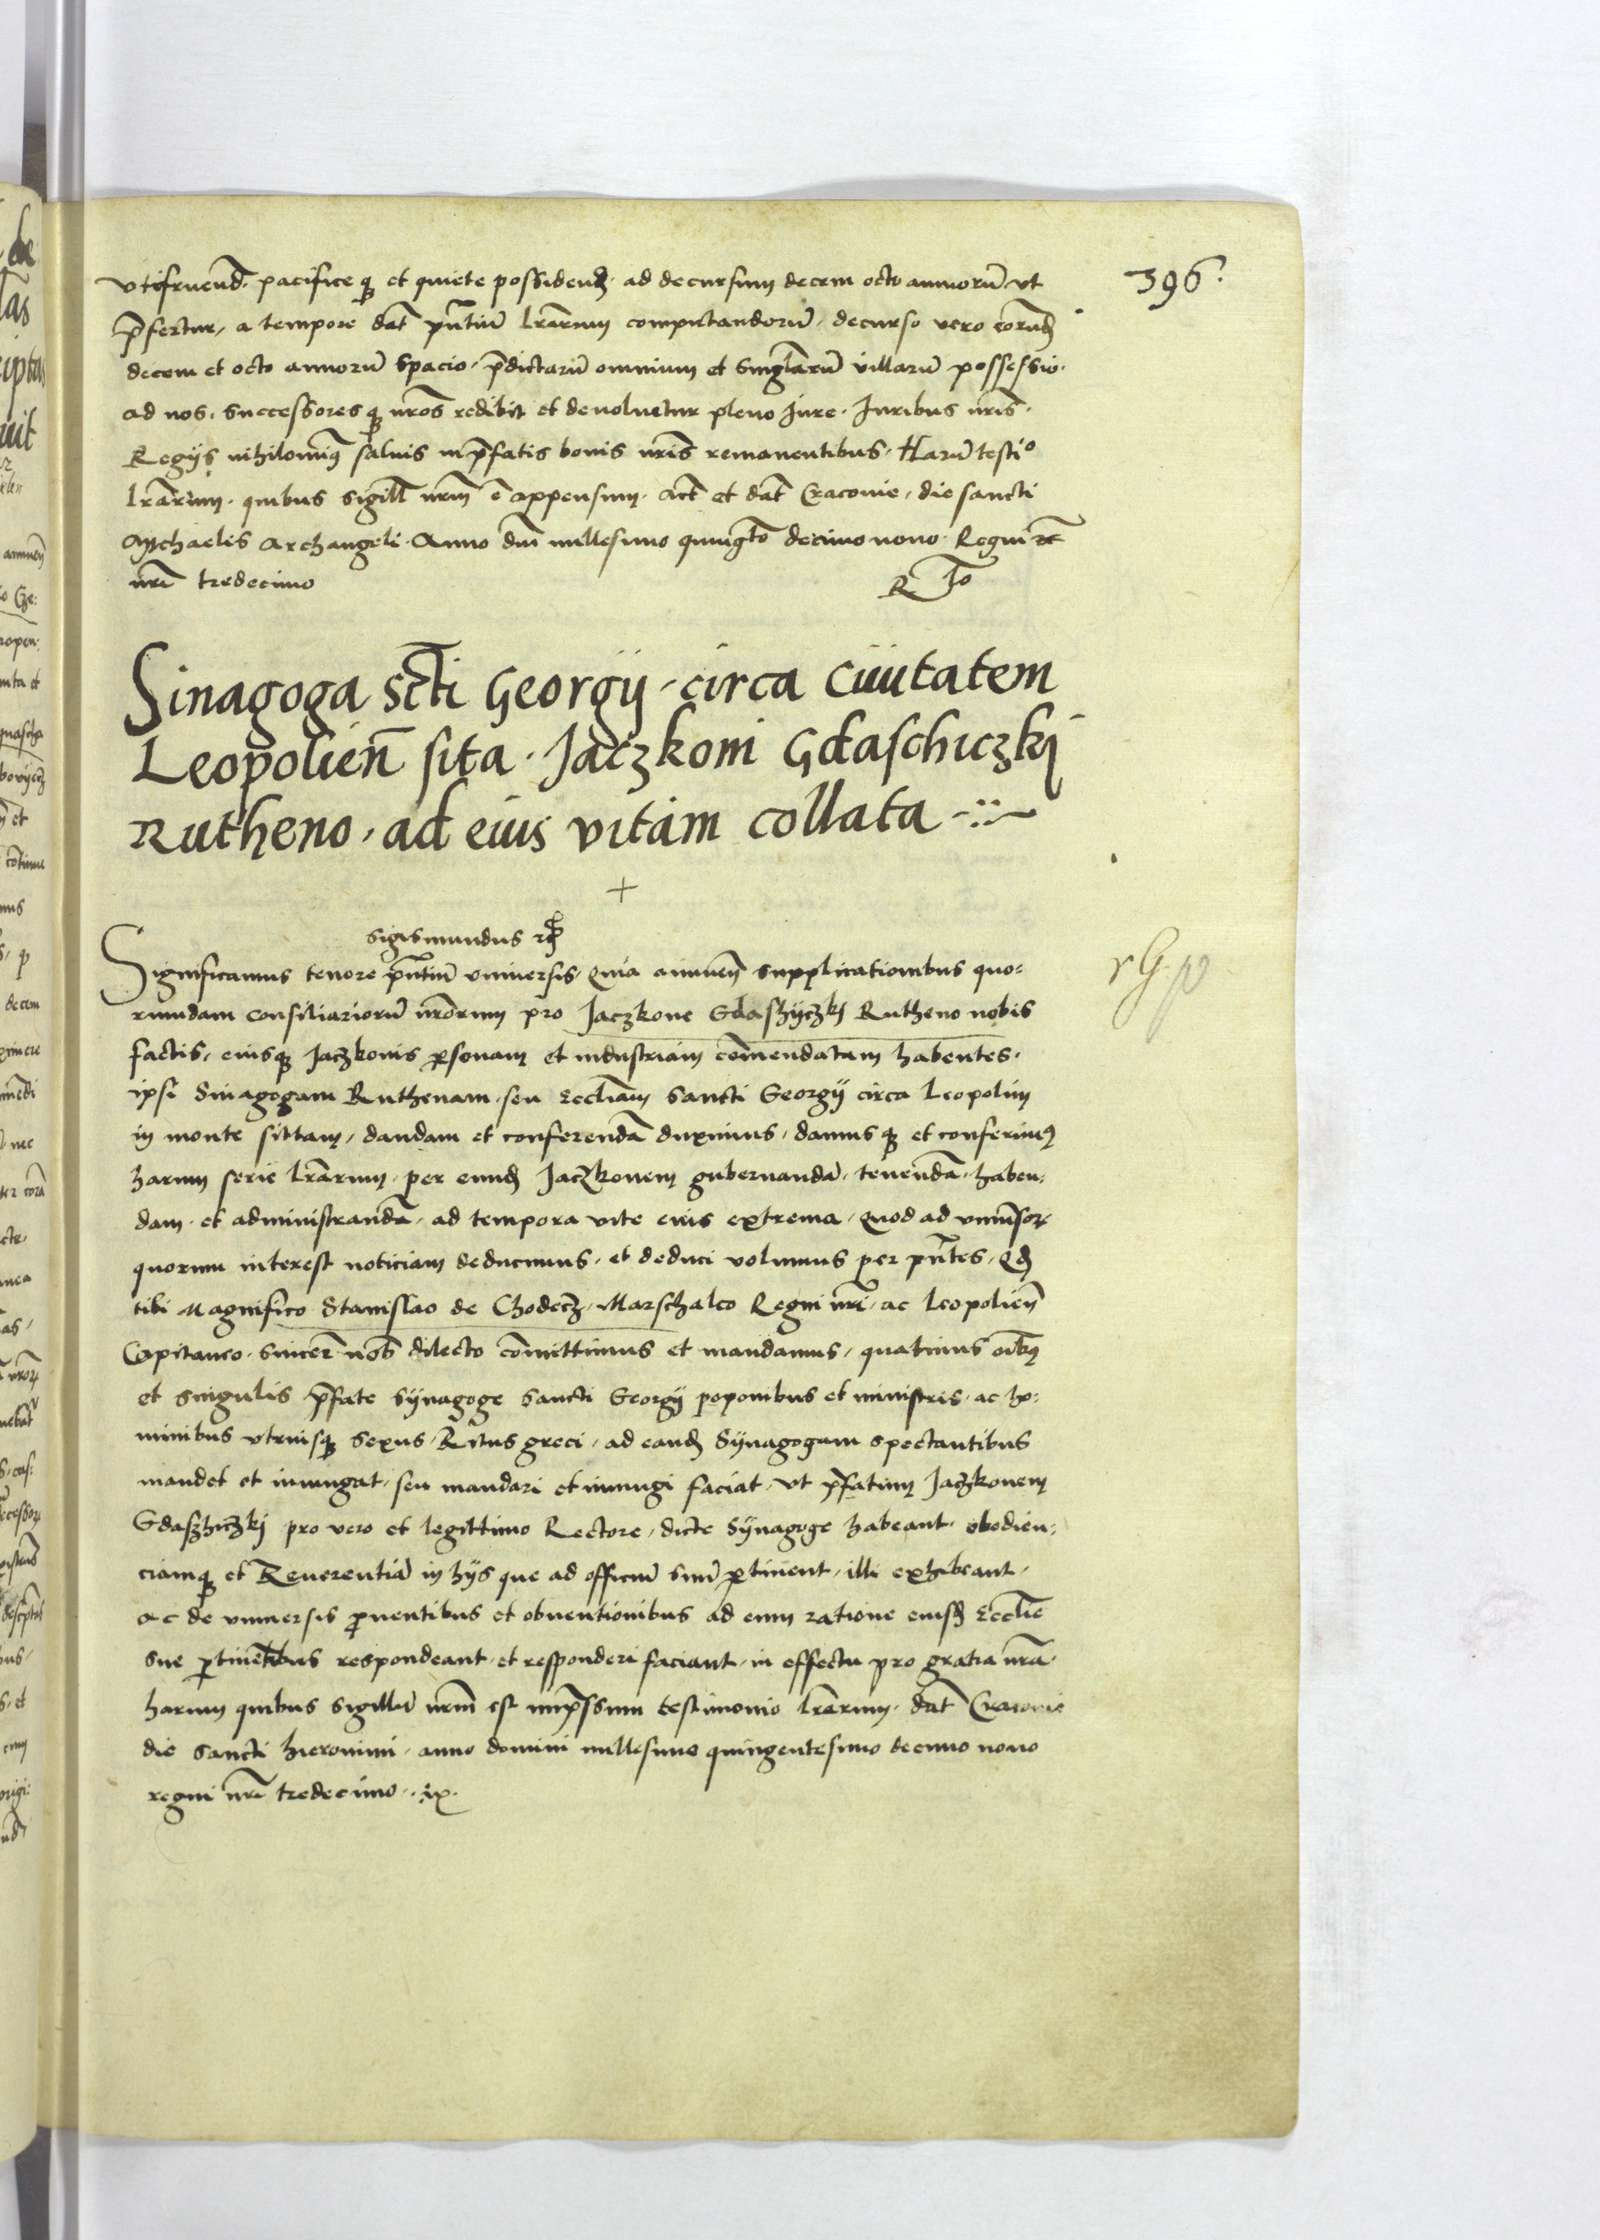 396.
vtifruend. pacificeq3 et quiete possidend. ad decursum decem octo annorū vt
p̄fertur, a tempore dat̄ pn̄tiū lr̄arum computandorū, decurso vero eorund
decem et octo annorū spacio, p̄dictarū omnium et singlarū villarū possessio.
ad nos, successoresq3 nr̄os redibit et devoluetur pleno Jure. Juribus nr̄is.
Regijs nihilominꝯ saluis in p̄fatis bonis nr̄is remanentibus. Harū testio
lr̄arum. quibus sigill nr̄m ē appensum. Act̄ et dat̄ Cracovie, die sancti
Mychaelis Archangeli. Anno dn̄i millesimo quingto decimo nono. Regni
nr̄i tredecimo
R To
Sinagoga sc̄ti Georgij circa Ciuitatem
Leopolien̄ sita. Jaczkoni Gdaschiczkj
Rutheno, ad eius vitam collata
sigismundus
Significamus tenore pn̄tiū vniversis. Quia annuen̄ supplicationibus quo=
rundam consiliariorū nr̄orum pro Jaczkone Gdaszyczkj Rutheno nobis
factis, eiusq3 Jaczkonis p̱sonam et industriam com̄endatam habentes.
ipsi Sinagogam Ruthenam seu eccl̄iam sancti Georgij circa Leopolim
in monte sittam, dandam et conferendā duximus, damusq3 et conferimꝯ
harum serie lr̄arum. per eund Jaczkonem gubernandā, tenendā, haben,
dam. et administrandā, ad tempora vite eius extrema. Quod ad vniūsor
quorum interest noticiam deducimus, et deduci volumus per pn̄tes. Qd
tibi Magnifico Stanislao de Chodecz, Marschalco Regni nr̄i, ac Leopolien̄
Capitaneo. sincer̄ nob̄ dilecto com̄ittimus et mandamus, quatinus oībꝯ
et singulis p̄fate Synagoge sancti Georgij poponibus et ministris. ac ho=
minibus vtriusq3 sexus, Ritus greci, ad eand Synagogam spectantibus
mandet et iniungat, seu mandari et iniungi faciat, vt p̄fatum Jaczkonem
Gdaszhiczkj pro vero et legittimo Rectore, dicte Synagoge habeant. obedien,
ciamq3 et Reverentiā in hijs que ad officiū suū p̱tinent, illi exhibeant,
ac de vniversis p̱ventibus et obventionibus ad eum ratione eiusd Eccl̄ie
sue p̱tinētibus respondeant, et responderi faciant, in effectu pro gratia nr̄a.
harum quibus sigillū nr̄m est imp̄ssum testimonio lr̄arum. dat̄ Cracovie
die sancti hieronimi, anno domini millesimo quingentesimo decimo nono
regni nr̄i tredecimo. ix.